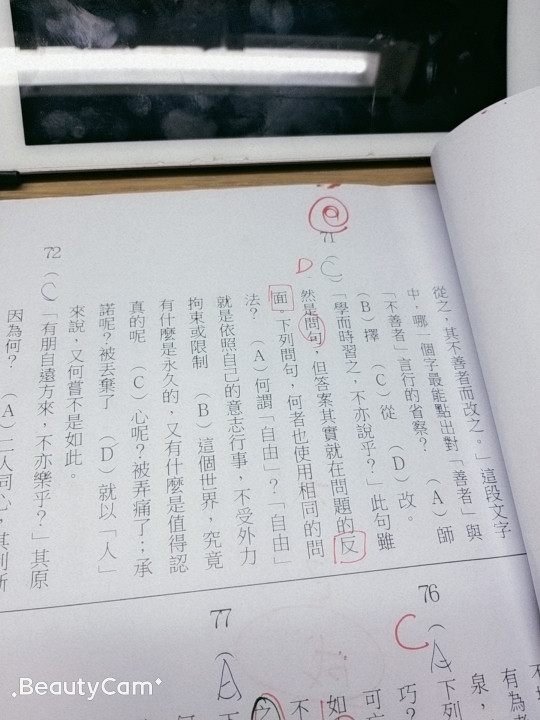 從之，其不善者而改之。」這段文字
中，哪一個字最能點出對「善者」與
「不善者」言行的省察？　（A）師
（B）擇　（C）從　（D）改。
71
D（C）「學而時習之，不亦說乎？」此句雖
然是問句，但答案其實就在問題的反
面。下列問句，何者也使用相同的問
法？　（A）何謂「自由」？「自由」
就是依照自己的意志行事，不受外力
拘束或限制　（B）這個世界，究竟
有什麼是永久的，又有什麼是值得認
真的呢　（C）心呢？被弄痛了；承
諾呢？被丟棄了　（D）就以「人」
來說，又何嘗不是如此。
72
（C）「有朋自遠方來，不亦樂乎？」其原
因為何？　（A）二人同心，其利斷
有為
泉，
76
C（A 下列
巧？
可
如
不
之
77
（A 下
.BeautyCam